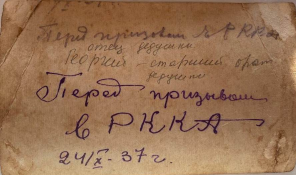 Перед призывом в РККА
отец дедушки
Георгий - старший брат
дедушки
Перед призывом
в РККА
24/X-37 г.